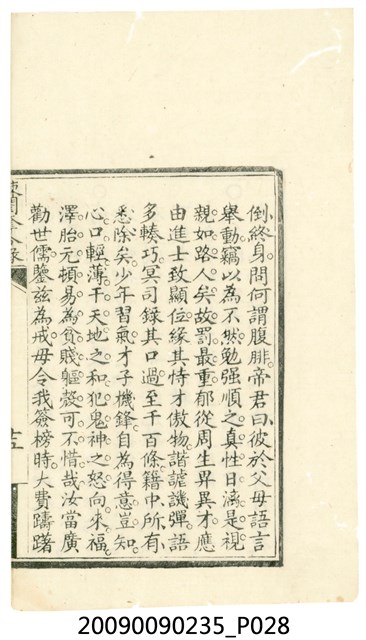 倒終身問何謂腹腓帝君曰彼於父母語言
舉動竊以為不然勉强順之真性日漓是視
親如路人矣故罰最重郁從周生畀異才應
由進士致顯位緣其恃才傲物諧謔譏彈語
多輳巧冥司録其口過至千百條籍中所有
悉除矣少年習氣才子機鋒自為得意豈知
心口輕薄干天地之和犯鬼神之怒向來福
澤胎元頓易為貧賤軀殼可不惜哉汝當廣
勸世儒鑒兹為戒毋令我簽榜時大費躊躇
20090090235_P028